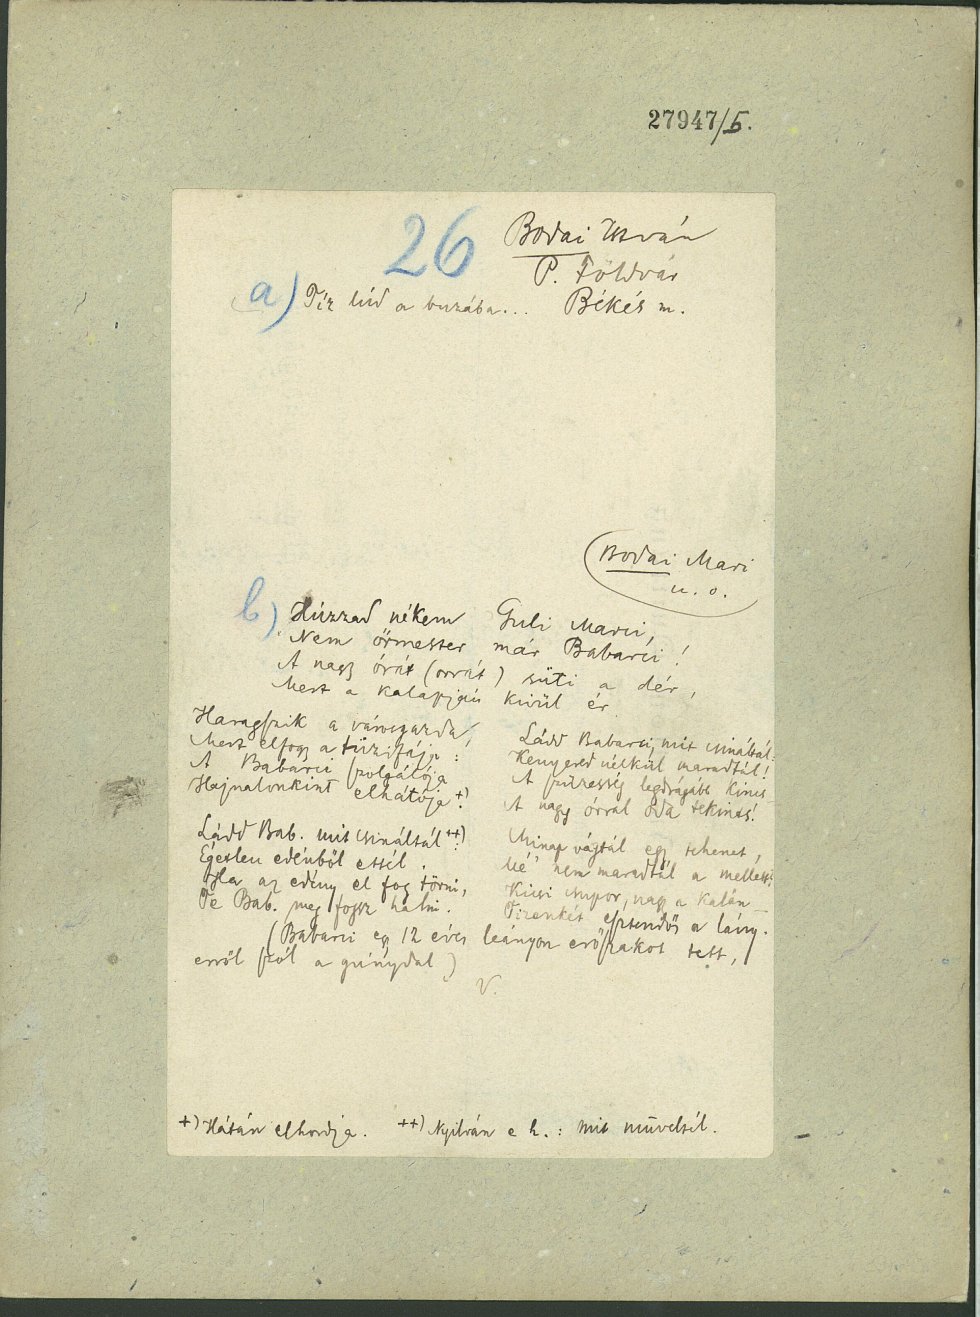 27947/5.
26
Bodai István
P. Földvár
Békés m.
a) Tíz lúd a buzába...
Bodai Mari
u. o.
b) Húzzad nékem Guli Marci,
Nem őrmester már Babarci!
A nagy órát (orrát) süti a dér,
Mert a kalapján kivül ér.
Haragszik a városgazda,
Mert elfogy a tüzifája:
A Babarci szolgálója
Hajnalonkint elhátója +)!
Ládd Bab. mit csináltál ++)!
Égetlen edénből ettél.
Ha az edény el fog törni,
Te Bab. meg fogsz halni.
Ládd Babarci, mit csináltál:
Kenyered nélkül maradtál!
A szüzesség legdrágább kincs
A nagy órral oda tekints!
Minap vágtál egy tehenet,
Mé nem maradtál a mellett?
Kicsi csupor, nagy a kalán
Tizenkét esztendős a lány.
(Babarci egy 12 éves leányon erőszakot tett,
erről szól a gúnydal)
V.
+) Hátán elhordja. ++) Nyilván e h.: mit müveltél.